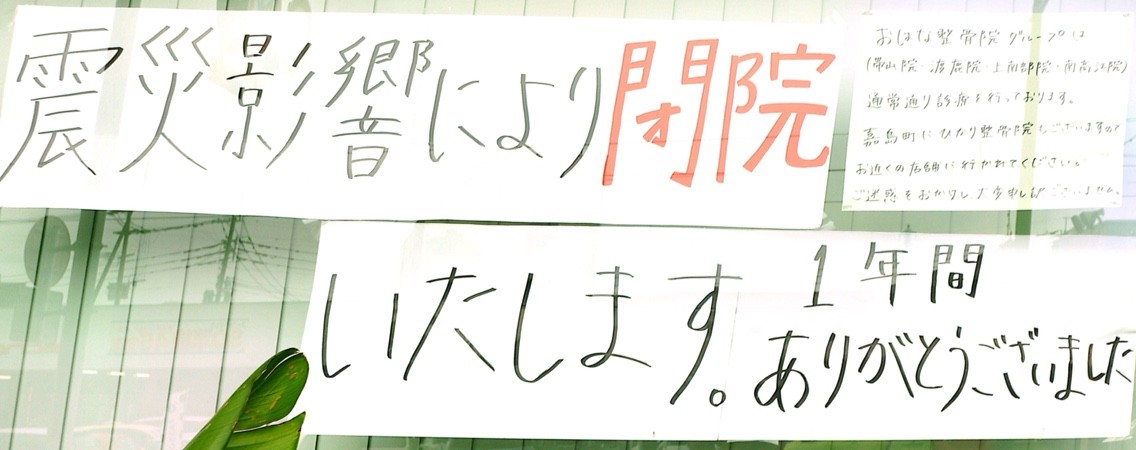 震災影響により閉院
いたします。
1年間
ありがとうございました
おはな整骨院グループは
(帯山院・渡鹿院・上南部院・南高江院)
通常通り診療を行っております。
嘉島町にひなり整骨院もございますので
お近くの店舗に行かれてください。
ご迷惑をおかけし大変申し訳ございません。